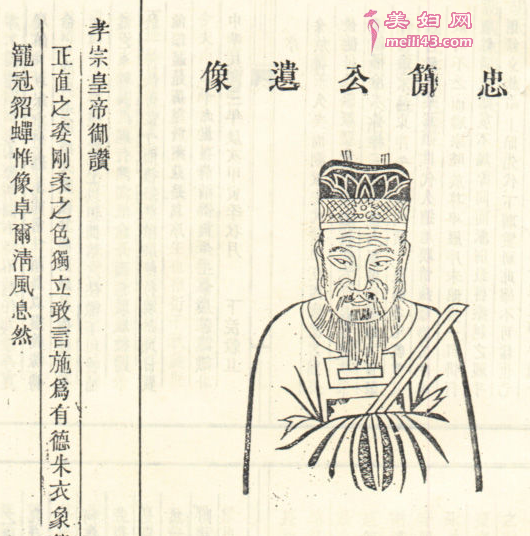 美妇网
meili43.com
忠簡公遺像
孝宗皇帝御讚
正直之委剛柔之色獨立敢言施爲有德朱衣象
籠冠貂蟬惟像卓爾清風息然